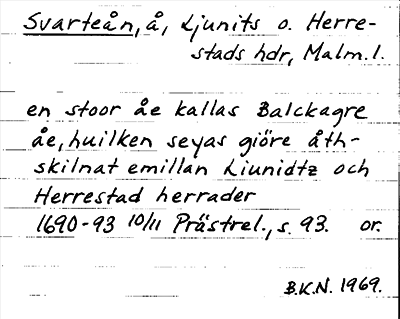 Svarteån, å, Ljunits o. Herre-
stads hdr, Malm. l.
en stoor åe kallas Balckagre
åe, huilken seyas giöre åth-
skilnat emillan Liunidtz och
Herrestad herrader
1690-93 10/11 Prästrel., s. 93. or.
B.K.N. 1969.